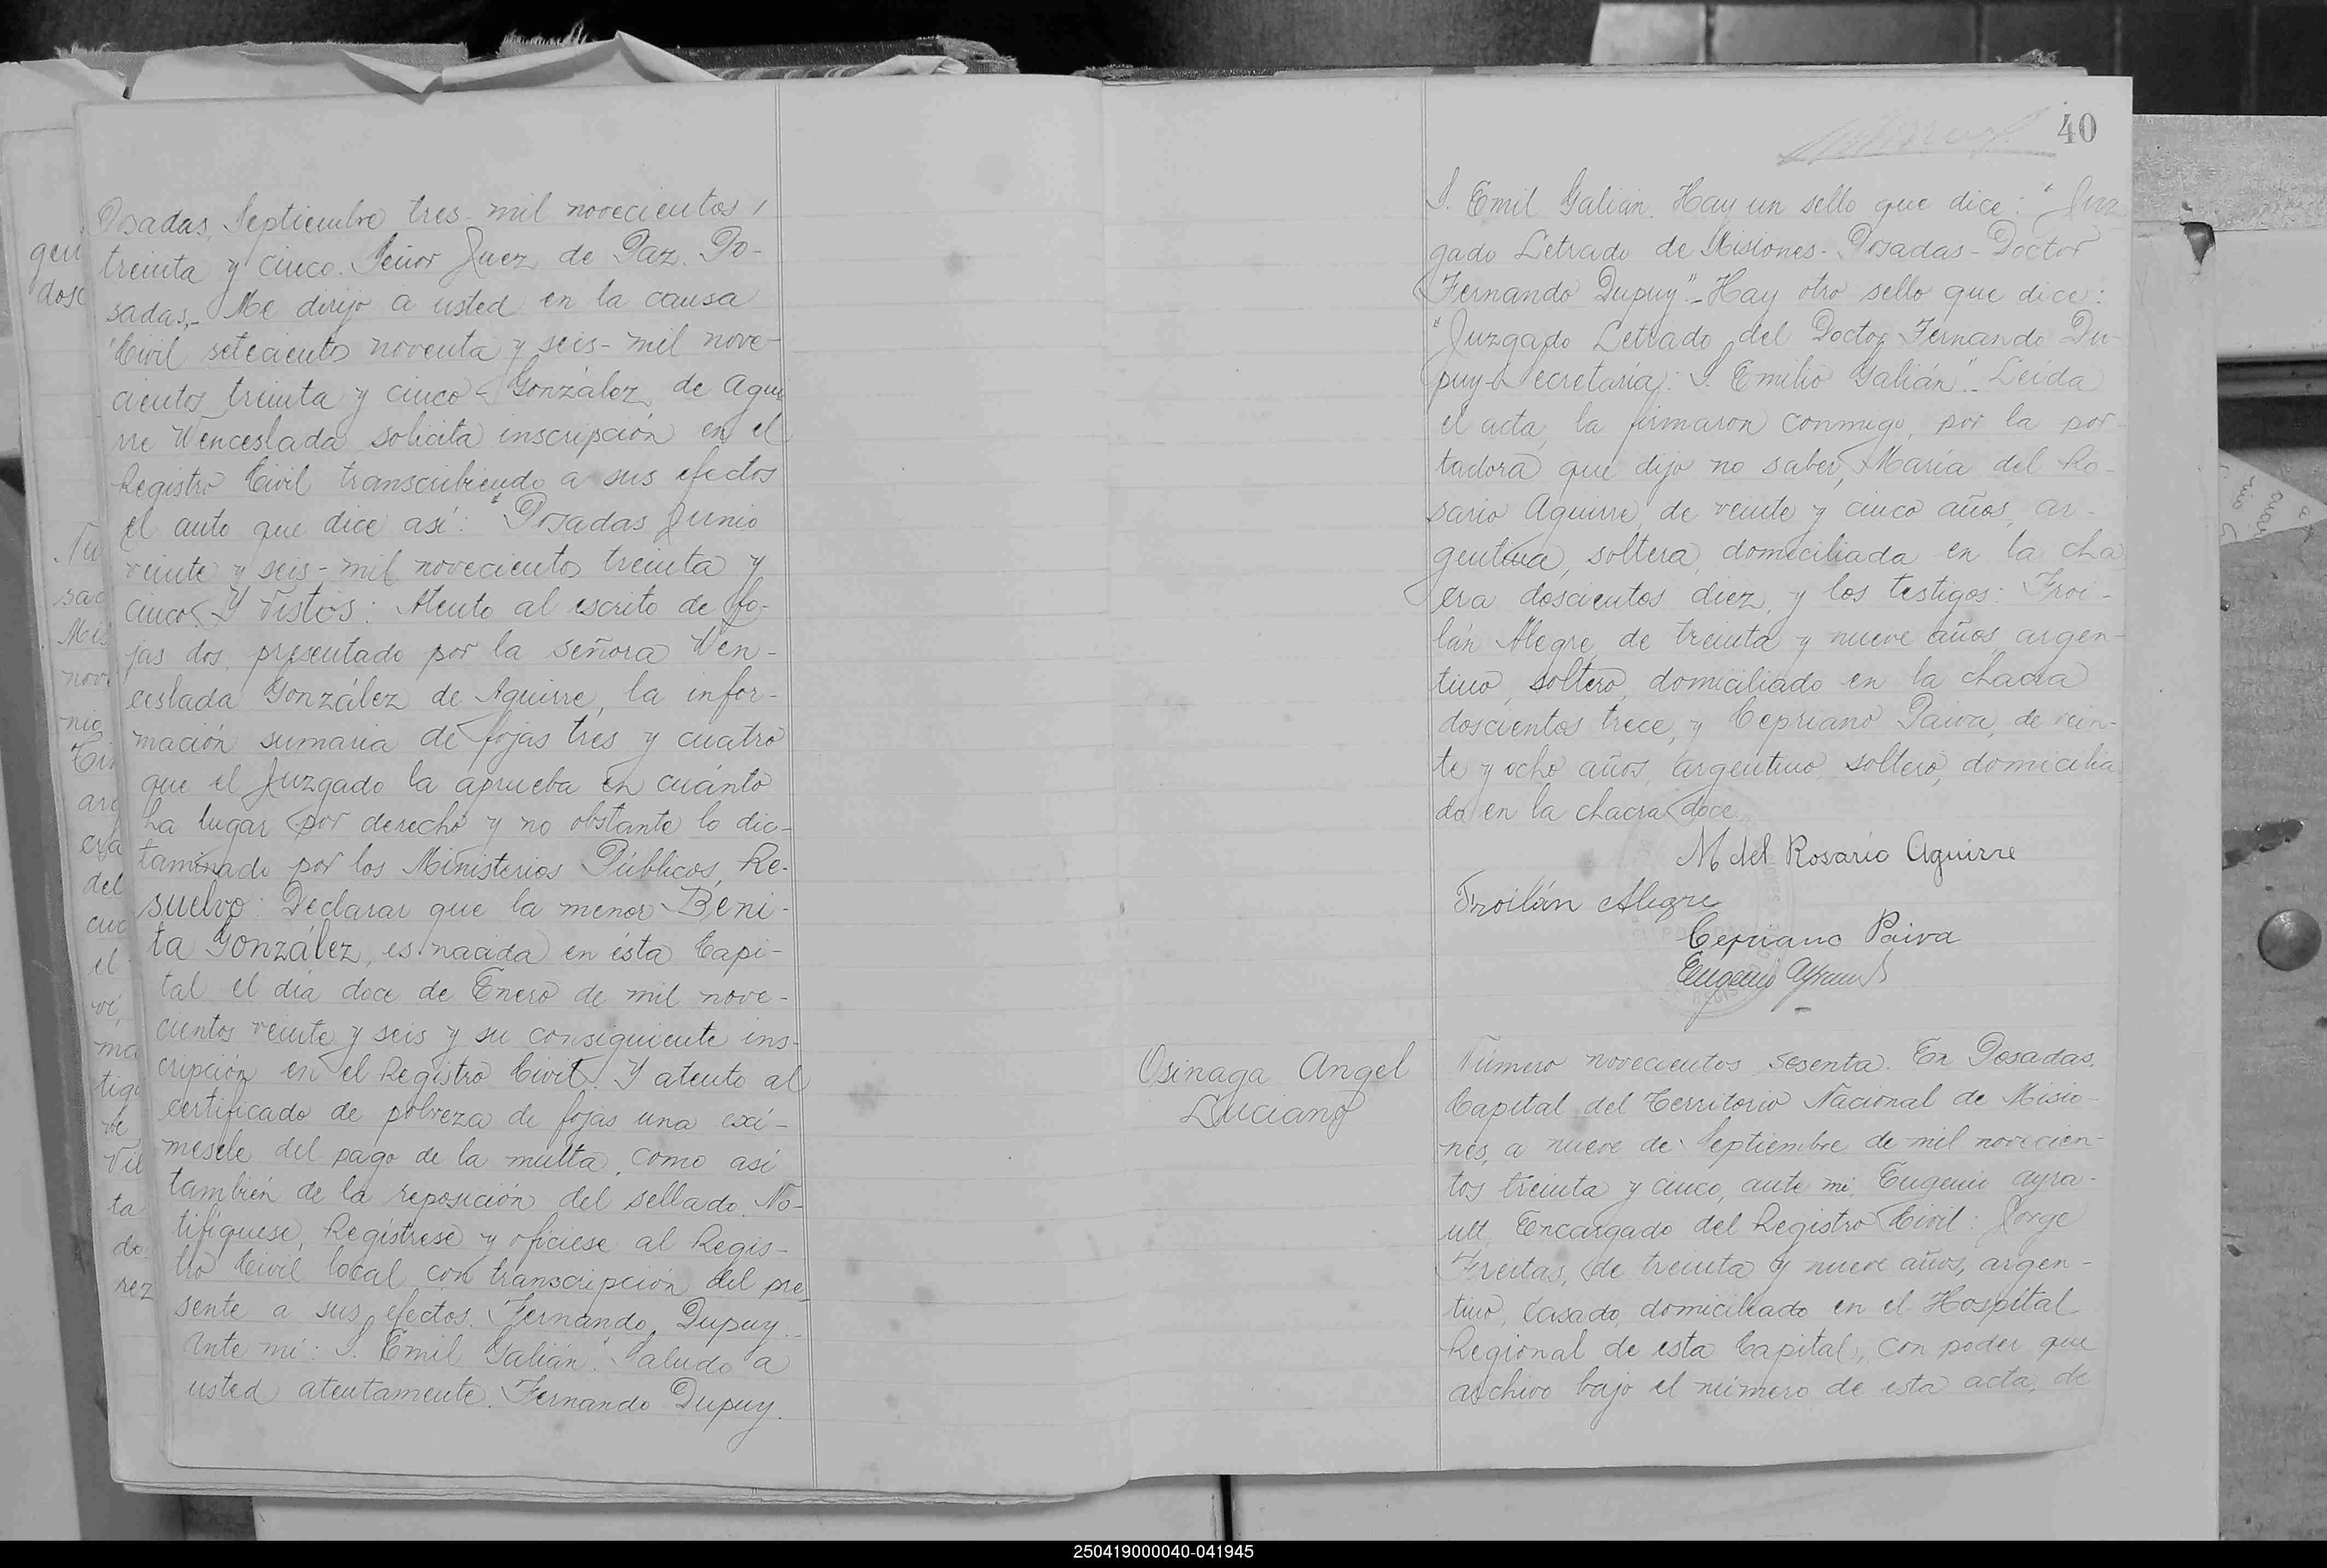 Posadas, Septiembre tres mil novecientos
treinta y cinco. Señor Juez de Paz. Po-
sadas.- Me dirijo a usted en la causa
Civil seteciento noventa y seis- mil nove-
cientos treinta y cinco - González de Agui
rre Wenceslada solicita inscripción en el
Registro Civil transcribiendo a sus efectos
el auto que dice así: "Posadas Junio
veinte y seis- mil novecientos treinta y
cinco. Y Vistos: Atento al escrito de fo-
jas dos, presentado por la señora Wen-
ceslada González de Aguirre, la infor-
mación sumaria de fojas tres y cuatro
que el Juzgado la aprueba en cuánto
ha lugar por derecho y no obstante lo dic-
taminado por los Ministerios Públicos, Re-
suelvo: Declarar que la menor Beni-
ta González, es nacida en ésta Capi-
tal el día doce de Enero de mil nove-
cientos veinte y seis y su consiguiente ins-
cripción en el Registro Civil. Y atento al
certificado de pobreza de fojas una exí-
mesele del pago de la multa, como así
también de la reposición del sellado. No-
tifíquese, Regístrese y ofíciese al Regis-
tro Civil local con transcripción del pre-
sente a sus efectos. Fernando Dupuy.-
Ante mí: S. Emil Galián". Saludo a
usted atentamente. Fernando Dupuy.
40
S. Emil Galián. Hay un sello que dice: "Juz
gado Letrado de Misiones- Posadas- Doctor
Fernando Dupuy".- Hay otro sello que dice:
"Juzgado Letrado del Doctor Fernando Du-
puy- Secretaría: S. Emilio Galián".- Leída
el acta, la firmaron conmigo, por la por-
tadora que dijo no saber, María del Ro-
sario Aguirre, de veinte y cinco años, ar-
gentina, soltera, domiciliada en la cha
cra doscientos diez, y los testigos: Froi-
lán Alegre, de treinta y nueve años, argen-
tino, soltero, domiciliado en la chacra
doscientos trece, y Cepriano Paiva, de vein-
te y ocho años, argentino, soltero, domicilia
do en la chacra doce
M del Rosario Aguirre
Froilán Alegre
Cepriano Paiva
Eugenio Ayrault
Osinaga Angel
Luciano
Número novecientos sesenta. En Posadas,
Capital del Territorio Nacional de Misio-
nes, a nueve de Septiembre de mil novecien-
tos treinta y cinco, ante mí, Eugenio Ayra-
ult, Encargado del Registro Civil: Jorge
Freitas, de treinta y nueve años, argen-
tino, casado, domiciliado en el Hospital
Regional de esta Capital, con poder que
archivo bajo el número de esta acta, de
250419000040-041945